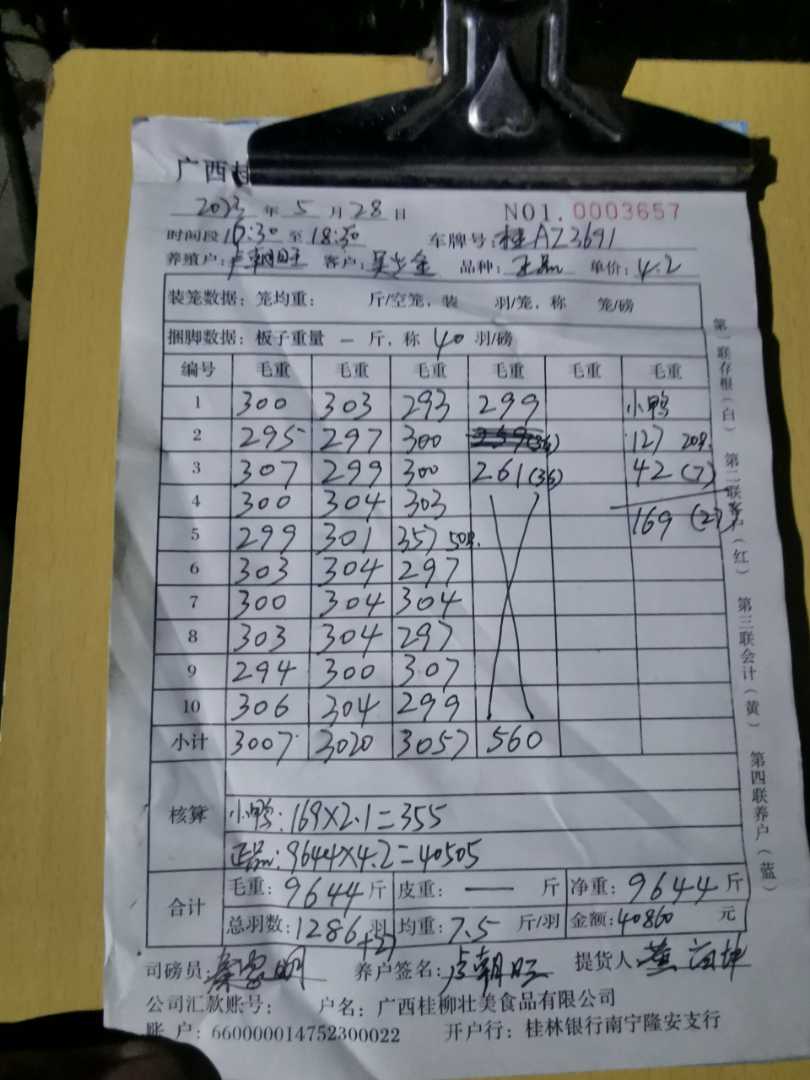 广西
2023年5月28日 NO1.0003657
时间段16:30至18:30 车牌号:桂AZ3691
养殖户:卢朝旺 客户: 品种:正品 单价:4.2
装笼数据:笼均重: 斤/空笼,装 羽/笼,称 笼/磅
捆脚数据:板子重量 — 斤,称 40 羽/磅
编号 毛重 毛重 毛重 毛重 毛重 毛重
1 300 303 293 299 小鸭
2 295 297 300 259(36) 127 20只
3 307 299 300 261(36) 42(7)
4 300 304 303 169(27)
5 299 301 357 50只
6 303 304 297
7 300 304 304
8 303 304 297
9 294 300 307
10 306 304 299
小计 3007 3020 3057 560
核算
小鸭:169×2.1=355
正品:9644×4.2=40505
合计 毛重:9644斤 皮重:— 斤 净重:9644斤
总羽数:1286羽+27 均重:7.5斤/羽 金额:40860元
司磅员:秦家明 养户签名:卢朝旺 提货人:黄
公司汇款账号: 户名:广西桂柳壮美食品有限公司
账户:660000014752300022 开户行:桂林银行南宁隆安支行
第一联存根(白)
第二联客户(红)
第三联会计(黄)
第四联养户(蓝)